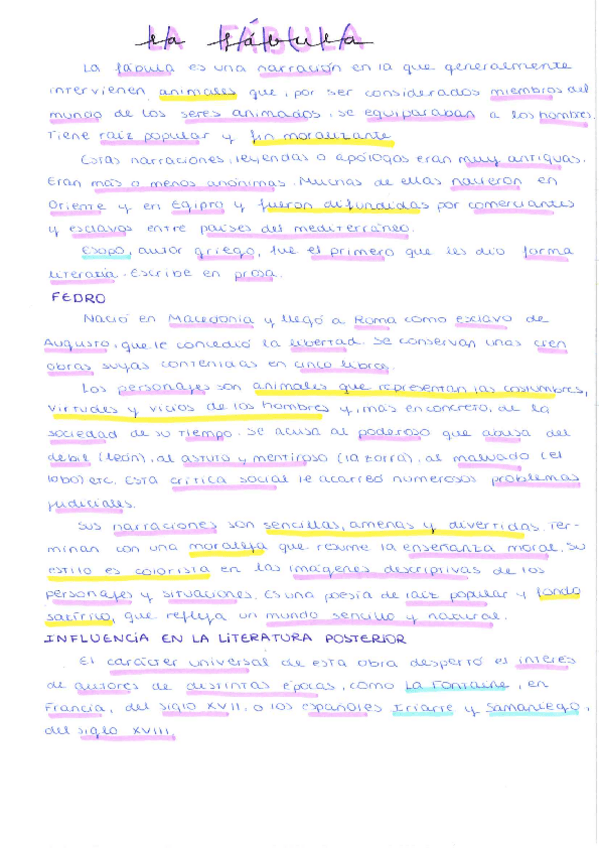 LA FÁBULA
La fábula es una narración en la que generalmente
intervienen animales que, por ser considerados miembros del
mundo de los seres animados, se equiparaban a los hombres.
Tiene raíz popular y fin moralizante
Estas narraciones, leyendas o apólogos eran muy antiguas.
Eran más o menos anónimas. Muchas de ellas nacieron en
Oriente y en Egipto y fueron difundidas por comerciantes
y esclavos entre países del mediterráneo.
Esopo, autor griego, fue el primero que les dio forma
literaria. Escribe en prosa.
FEDRO
Nació en Macedonia y llegó a Roma como esclavo de
Augusto, que le concedió la libertad. Se conservan unas cien
obras suyas contenidas en cinco libros.
Los personajes son animales que representan las costumbres,
virtudes y vicios de los hombres y, más en concreto, de la
sociedad de su tiempo. Se acusa al poderoso que abusa del
débil (león), al astuto y mentiroso (la zorra), al malvado (el
lobo) etc. Esta crítica social le acarreó numerosos problemas
judiciales.
Sus narraciones son sencillas, amenas y divertidas. Ter-
minan con una moraleja que resume la enseñanza moral. Su
estilo es colorista en las imágenes descriptivas de los
personajes y situaciones. Es una poesía de raíz popular y fondo
satírico, que refleja un mundo sencillo y natural.
INFLUENCIA EN LA LITERATURA POSTERIOR
El carácter universal de esta obra despertó el interés
de autores de distintas épocas, como La Fontaine, en
Francia, del siglo XVII, o los españoles Iriarte y Samaniego,
del siglo XVIII.